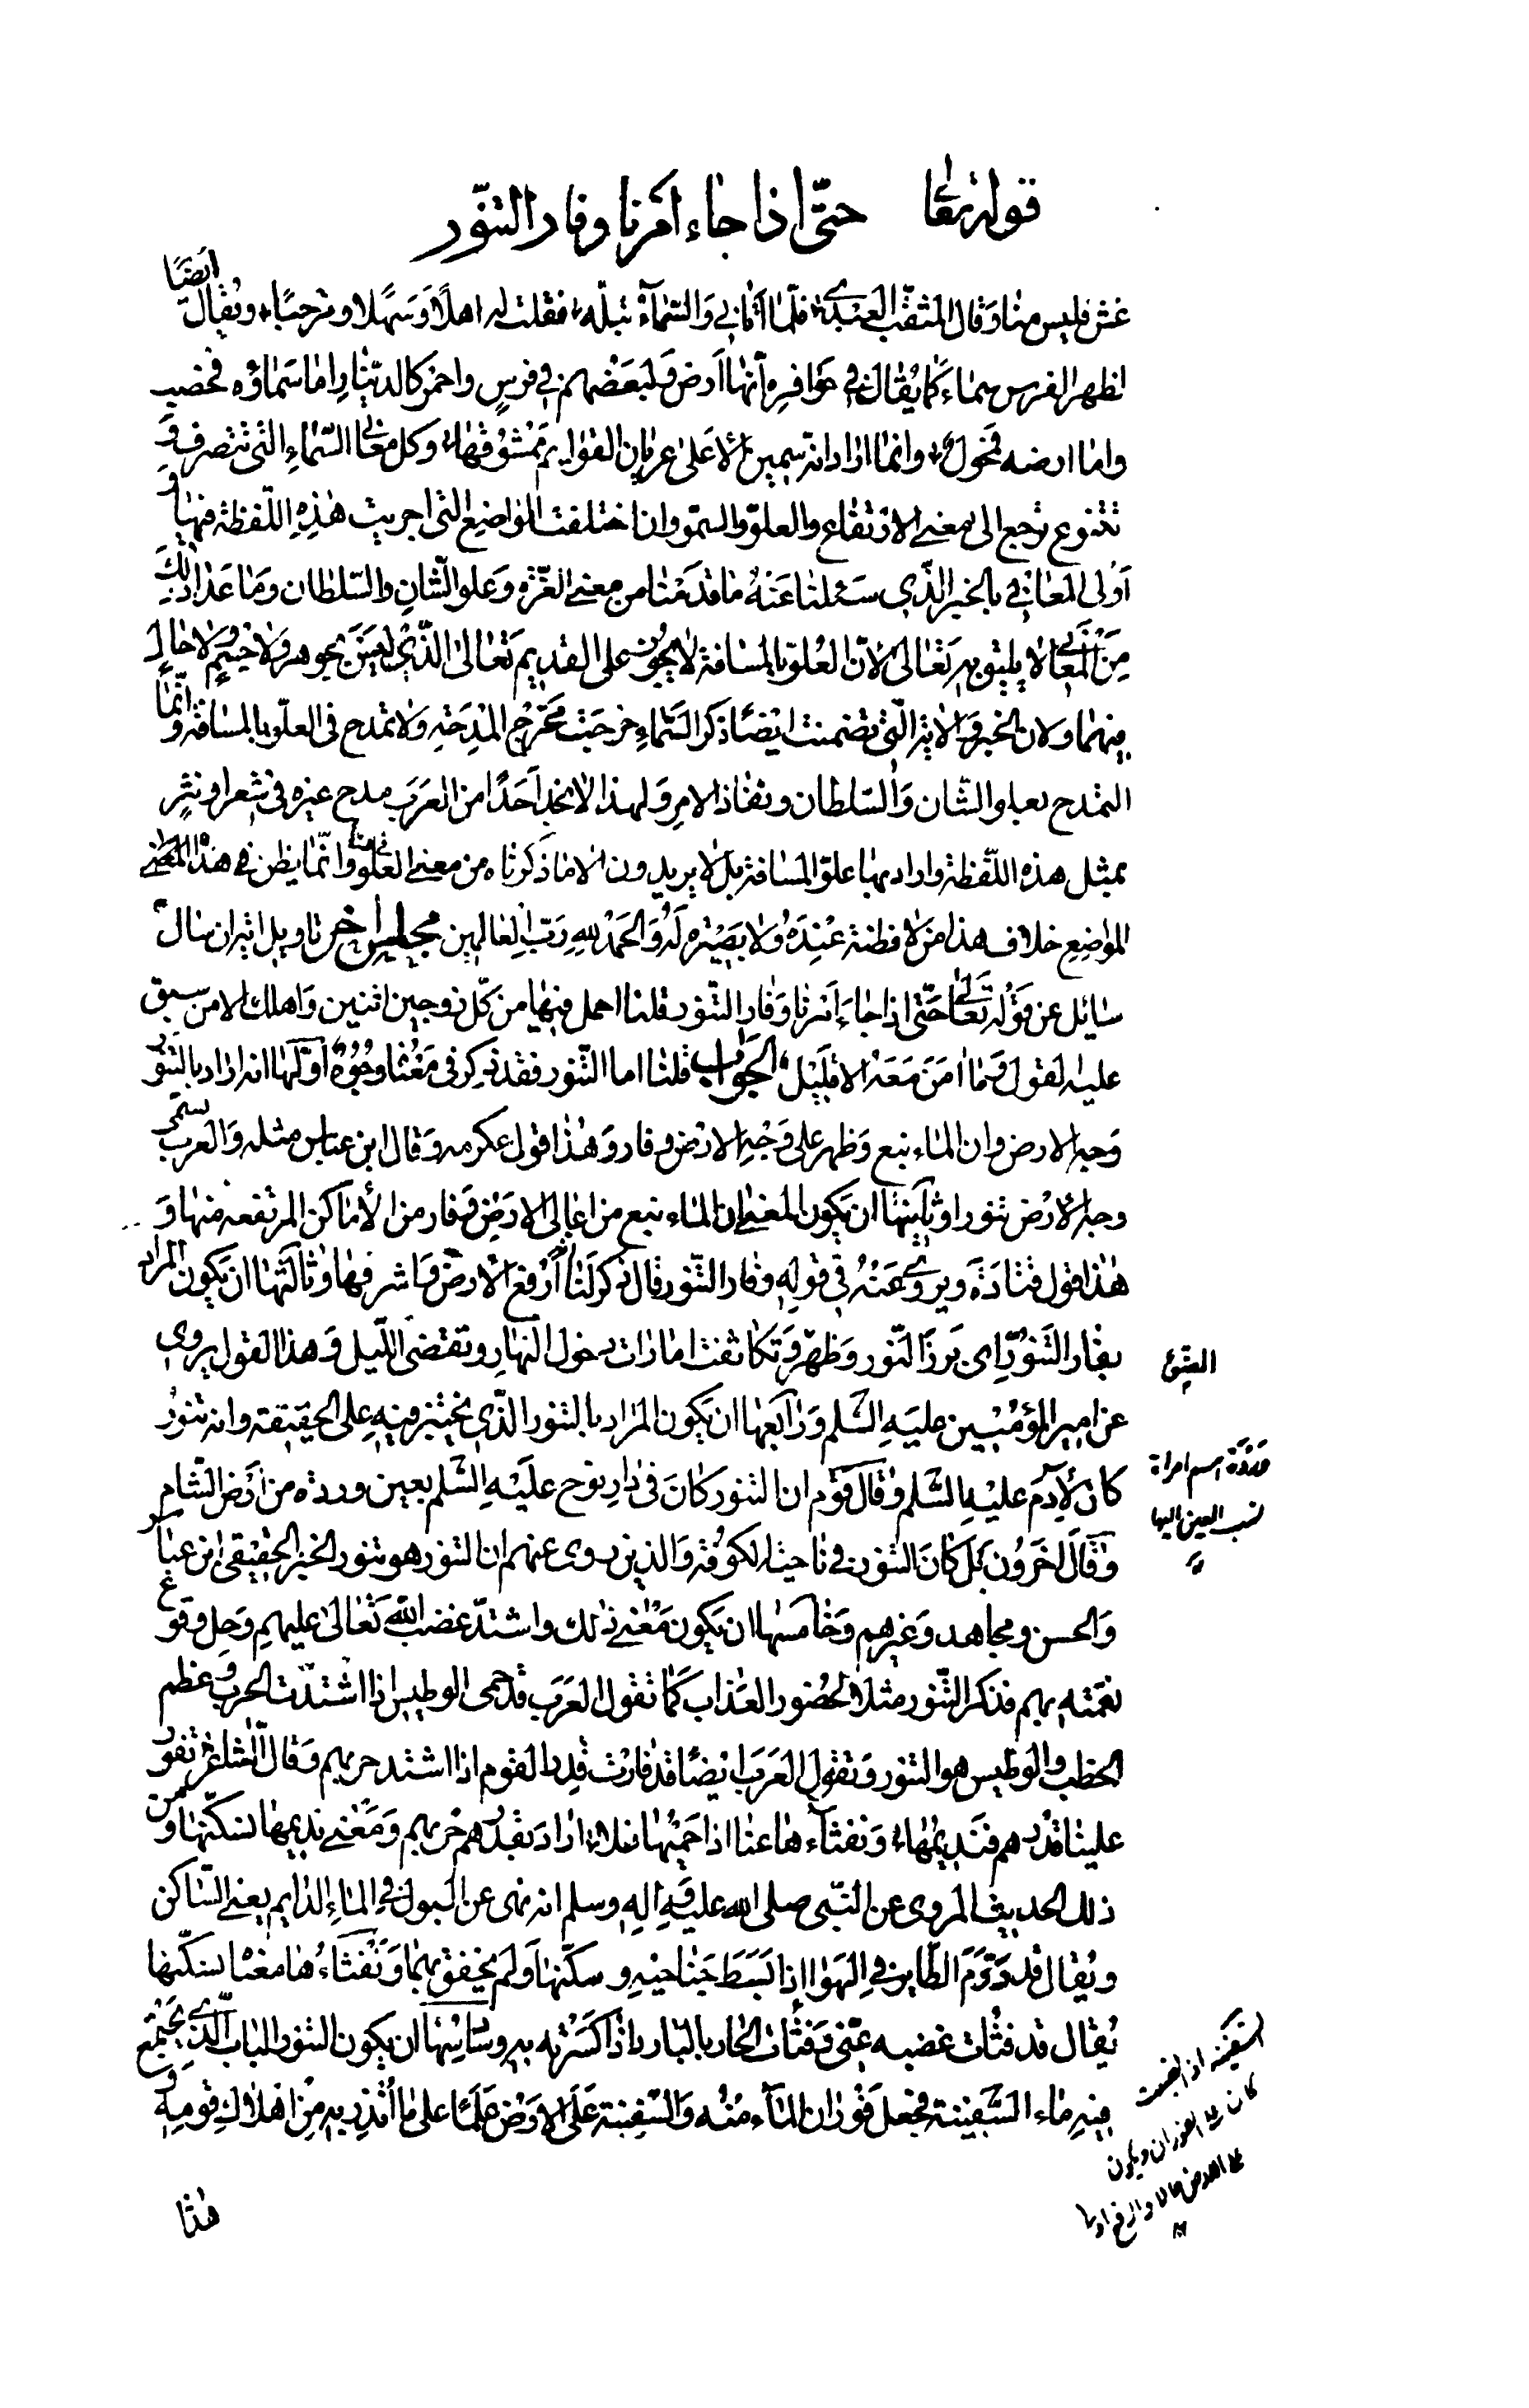 قوله تعالى حتّى اذا جاء امرنا وفار التنّور
غش فليس منا وقال المثقّب العبدى فلمّا اتانى والسّماء تبلّه فقلت له اهلًا وسهلا ومرحبًا ويُقال ايضًا
لظهر الفرس سماء كما يُقال فى حوافره انها ارض ولبعضهم فى فرسٍ واحمر كالدّينار اما سماؤه فخصيب
واما ارضه فمحول وانما اراد انه سمين الاعلى عريان القوايم ممشوقها وكل معانى السّماء التى تتصرف و
تتنوع ترجع الى معنى الارتفاع والعلوّ والسموّ وان اختلفت المواضع التى اجريت هذه اللّفظة فيها و
اَولى المعانى بالخبر الذّى سئلنا عنه ما قدمنا من معنى العزّة وعلو الشان والسّلطان وما عدا ذلك
من المعانى لا يليق به تعالى لانّ العُلوّ بالمسافة لا يجوز على القديم تعالى الذّى ليس بجوهر ولا جسم ولا حالٍ
فيهما ولان الخبر والاية التّى تضمنت ايضًا ذكر السّماء خرجت مخرج المدحة ولا تمدح فى العلّو بالمسافة وانّما
التمدح بعلو الشّان والسّلطان ونفاذ الامر ولهذا لا تجد احدًا من العرب مدح غيره فى شعر او نثرٍ
بمثل هذه اللّفظة واراد بها علوّ المسافة بل لا يريدون الا ما ذكرناه من معنى العلو وانّما يظن فى هذا المعنى
المواضع خلاف هذا من لا فطنة عنده ولا بصيرة له والحمد لله ربّ العالمين مجلس اخر تاويل اية ان سال
سائل عن قوله تعالى حتّى اذا جاء امرنا وفار التّنور قلنا احمل فيها من كلّ زوجين اثنين واهلك الا من سبق
عليه القول وما امن معه الا قليل الجواب قلنا اما التّنور فقد ذكر فى معناه وجوهٌ اوّلها انه اراد بالتنّور
وجه الارض وان الماء نبع وظهر على وجه الارض وفار وهذا قول عكرمه وقال ابن عباس مثله والعرب تسمّى
وجه الارض تنورا وثانيها ان يكون المعنى ان الماء نبع من اعالى الارض وفار من الاماكن المرتفعه منها و
هذا قول قتادة ويروى عنه فى قوله وفار التّنور قال ذكر لنا انّه ارفع الارض واشرفها وثالثها ان يكون المراد
بفار التنّور اى برز النّور وظهر وتكاثفت امارات دخول النهار وتقضى اللّيل وهذا القول يروى
عن امير المؤمنين عليه السّلم ورابعها ان يكون المراد بالتنور الذّى يختبز فيه على الحقيقة وانه تنور
كان لآدم عليه السّلم وقال قوم ان التنور كان فى دار نوح عليه السّلم بعين وردة من ارض الشام
وقال اخرون بل كان التنور فى ناحية الكوفة والذين روى عنهم ان التنور هو تنور الخبز الحقيقى ابن عباس
والحسن ومجاهد وغيرهم وخامسها ان يكون معنى ذلك واشتدّ غضب الله تعالى عليهم وحل وقوع
نقمته بهم فذكر التّنور مثلا لحضور العذاب كما تقول العرب قد حمى الوطيس اذا اشتدّت الحرب وعظم
الخطب والوطيس هو التنور وتقول العرب ايضًا قد فارت قدر القوم اذا اشتد حربهم وقال الشاعر تفور
علينا قدرهم فنديمها ونفثاء ها عنا اذا حميها غلا اراد بقدرهم حربهم ومعنى نديمها نسكّنها ومن
ذلك الحديث المروى عن النبّى صلى الله عليه واله وسلم انه نهى عن البول فى الماء الدايم يعنى السّاكن
ويُقال قد دوّم الطاير فى الهواء اذا بسط جناحيه وسكّنها ولم يخفق بهما ونفثاءُ ها معناه نسكّنها
يُقال قد فثأت غضبه عنّى وفثأت الحار بالبارد اذا كسرته به وسادسها ان يكون التنور الباب الّذى يجتمع
فيه ماء السّفينة فجعل فوران الماء منه والسّفينة على الارض علمًا على ما انذر به من اهلاك قومه و
هذا
الضوء
وردة اسم امراة
نسب العين اليها
السفينه